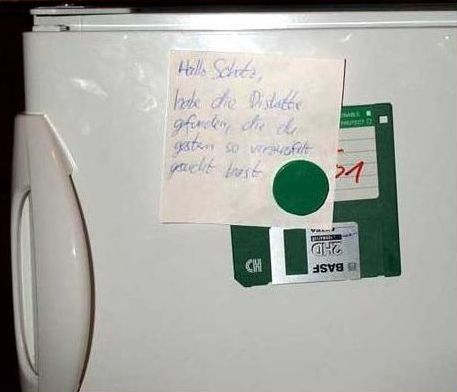 Hallo Schatz,
habe die Diskette
gefunden, die du
gestern so verzweifelt
gesucht hast
51
BASF
2HD
EXTRA
CH